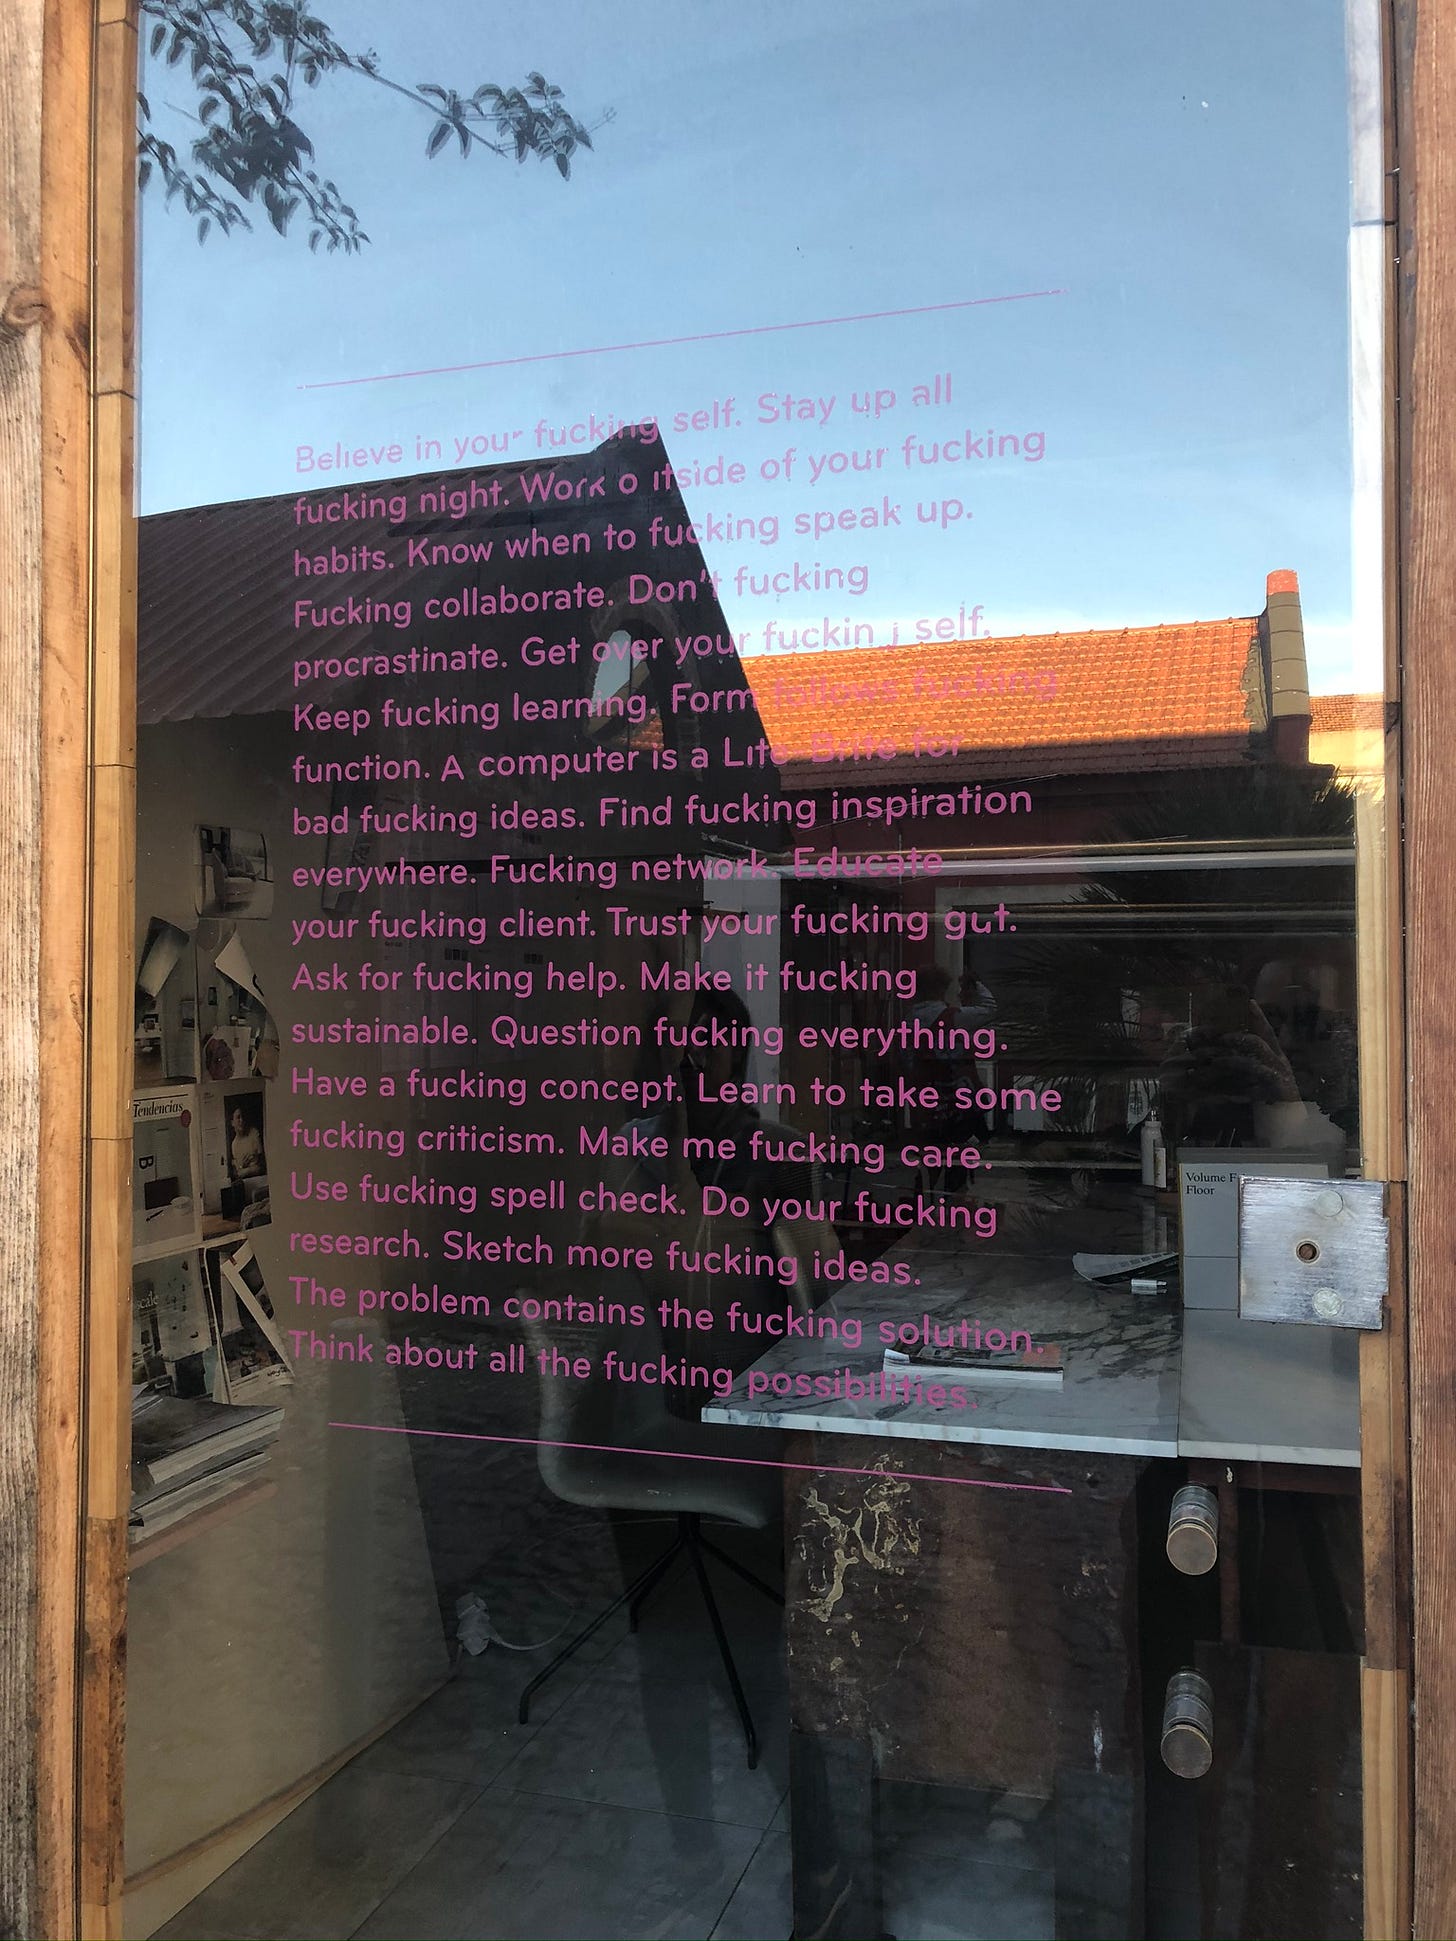 Believe in your fucking self. Stay up all
fucking night. Work outside of your fucking
habits. Know when to fucking speak up.
Fucking collaborate. Don't fucking
procrastinate. Get over your fucking self.
Keep fucking learning. Form follows fucking
function. A computer is a Lite-Brite for
bad fucking ideas. Find fucking inspiration
everywhere. Fucking network. Educate
your fucking client. Trust your fucking gut.
Ask for fucking help. Make it fucking
sustainable. Question fucking everything.
Have a fucking concept. Learn to take some
fucking criticism. Make me fucking care.
Use fucking spell check. Do your fucking
research. Sketch more fucking ideas.
The problem contains the fucking solution.
Think about all the fucking possibilities.
Tendencias
Volume
Floor